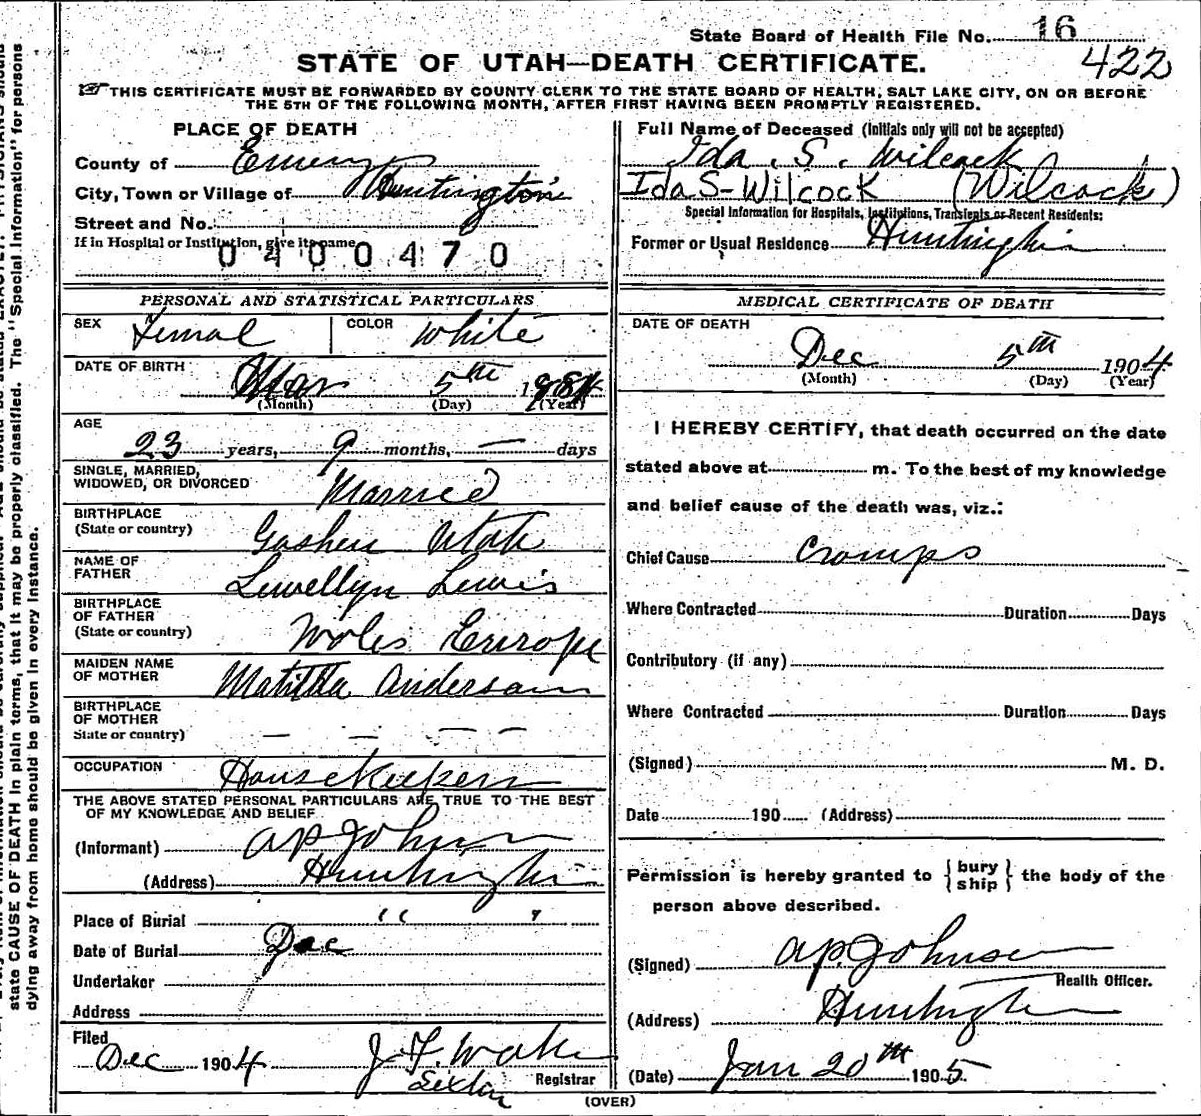 State Board of Health File No. 16
422
STATE OF UTAH—DEATH CERTIFICATE.
THIS CERTIFICATE MUST BE FORWARDED BY COUNTY CLERK TO THE STATE BOARD OF HEALTH, SALT LAKE CITY, ON OR BEFORE
THE 5TH OF THE FOLLOWING MONTH, AFTER FIRST HAVING BEEN PROMPTLY REGISTERED.
PLACE OF DEATH
County of Emery
City, Town or Village of Huntington
Street and No.
If in Hospital or Institution, give its name
0400470
Full Name of Deceased (Initials only will not be accepted)
Ida. S. Wilcock
Ida S-Wilcock (Wilcock)
Special Information for Hospitals, Institutions, Transients or Recent Residents:
Former or Usual Residence Huntington
PERSONAL AND STATISTICAL PARTICULARS
SEX Femal COLOR White
DATE OF BIRTH Mar 5th
(Month) (Day) (Year)
AGE
23 years, 9 months, — days
SINGLE, MARRIED,
WIDOWED, OR DIVORCED Married
BIRTHPLACE
(State or country) Goshen Utah
NAME OF
FATHER Lewellyn Lewis
BIRTHPLACE
OF FATHER
(State or country) Wales Europe
MAIDEN NAME
OF MOTHER Matilda Anderson
BIRTHPLACE
OF MOTHER
State or country) — — — —
OCCUPATION Housekeeper
THE ABOVE STATED PERSONAL PARTICULARS ARE TRUE TO THE BEST
OF MY KNOWLEDGE AND BELIEF
(Informant) A P Johnson
(Address) Huntington
Place of Burial " "
Date of Burial Dec
Undertaker
Address
Filed
Dec 1904 J. F. Wake
Sexton Registrar
MEDICAL CERTIFICATE OF DEATH
DATE OF DEATH
Dec 5th 1904
(Month) (Day) (Year)
I HEREBY CERTIFY, that death occurred on the date
stated above at m. To the best of my knowledge
and belief cause of the death was, viz.:
Chief Cause cramps
Where Contracted Duration Days
Contributory (if any)
Where Contracted Duration Days
(Signed) M. D.
Date 190 (Address)
Permission is hereby granted to {bury
ship} the body of the
person above described.
(Signed) A P. Johnson
Health Officer.
(Address) Huntington
(Date) Jan 20th 1905
(OVER)
state CAUSE OF DEATH in plain terms, that it may be properly classified. The "Special Information" for persons
dying away from home should be given in every instance.